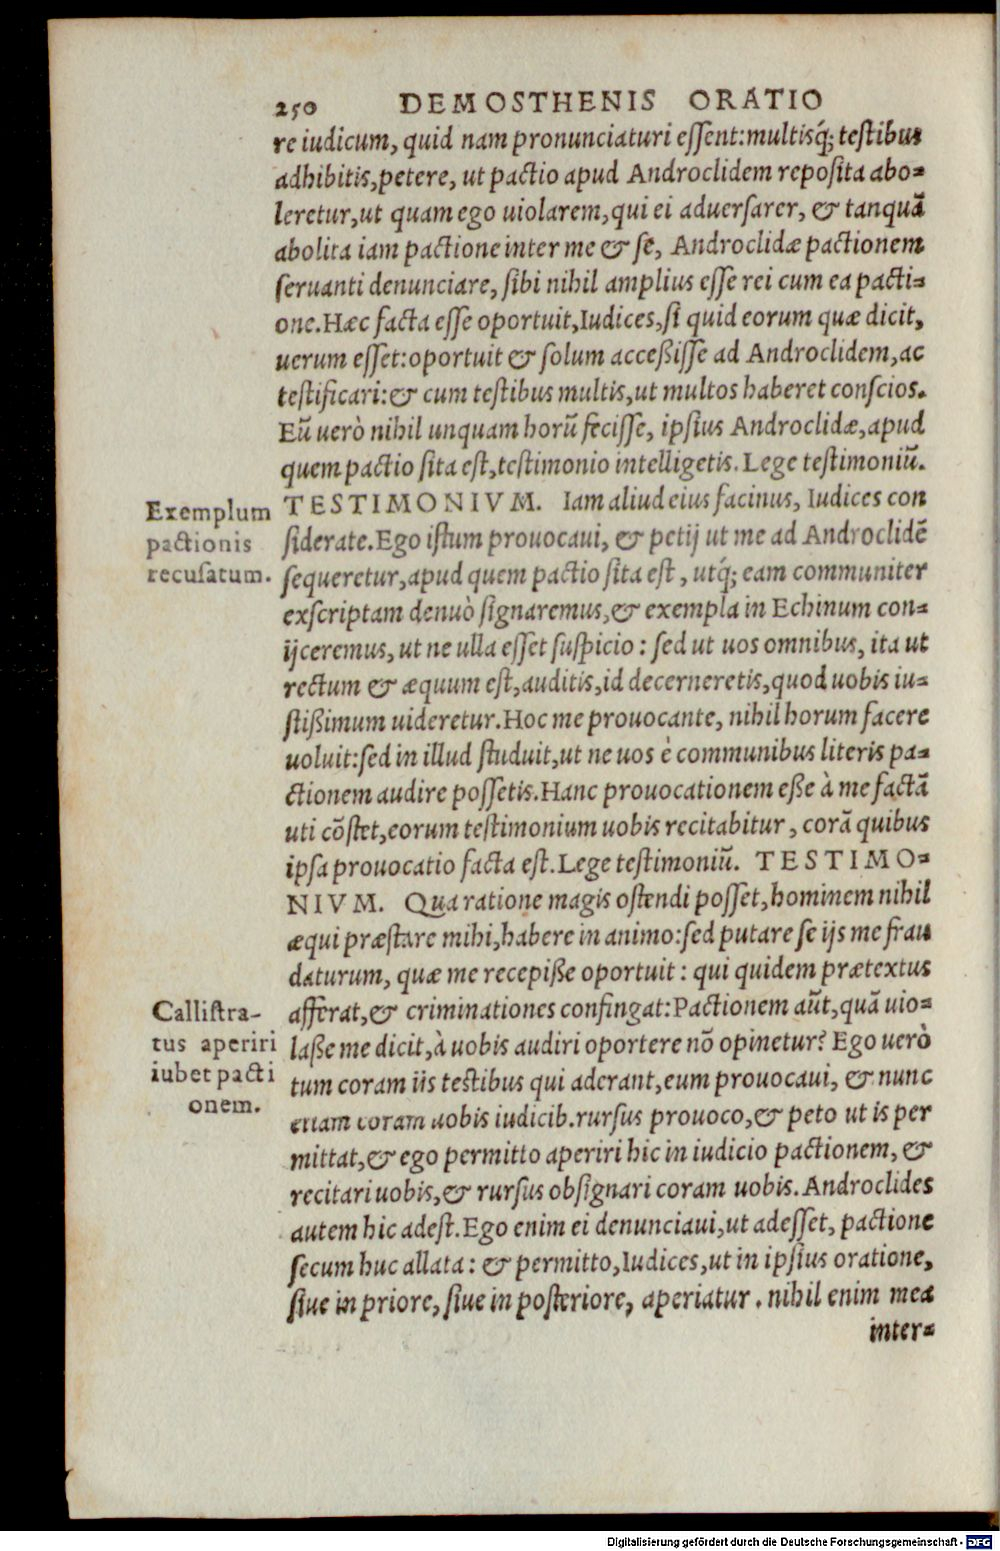 250 DEMOSTHENIS ORATIO
re iudicum, quid nam pronunciaturi essent: multisq́; testibus
adhibitis, petere, ut pactio apud Androclidem reposita abo-
leretur, ut quam ego uiolarem, qui ei aduersarer, & tanquã
abolita iam pactione inter me & se, Androclidæ pactionem
seruanti denunciare, sibi nihil amplius esse rei cum ea pacti-
one. Hæc facta esse oportuit, Iudices, si quid eorum quæ dicit,
uerum esset: oportuit & solum acceßisse ad Androclidem, ac
testificari: & cum testibus multis, ut multos haberet conscios.
Eũ uerò nihil unquam horũ fecisse, ipsius Androclidæ, apud
quem pactio sita est, testimonio intelligetis. Lege testimoniũ.
TESTIMONIVM. Iam aliud eius facinus, Iudices con
Exemplum
pactionis
recusatum.
siderate. Ego istum prouocaui, & petij ut me ad Androclidẽ
sequeretur, apud quem pactio sita est, utq́; eam communiter
exscriptam denuò signaremus, & exempla in Echinum con-
ijceremus, ut ne ulla esset suspicio: sed ut uos omnibus, ita ut
rectum & æquum est, auditis, id decerneretis, quod uobis iu-
stißimum uideretur. Hoc me prouocante, nihil horum facere
uoluit: sed in illud studuit, ut ne uos è communibus literis pa-
ctionem audire possetis. Hanc prouocationem eße à me factã
uti cõstet, eorum testimonium uobis recitabitur, corã quibus
ipsa prouocatio facta est. Lege testimoniũ. TESTIMO-
NIVM. Qua ratione magis ostendi posset, hominem nihil
æqui præstare mihi, habere in animo: sed putare se ijs me frau
daturum, quæ me recepiße oportuit: qui quidem prætextus
afferat, & criminationes confingat: Pactionem aũt, quã uio-
Callistra-
tus aperiri
iubet pacti
onem.
laße me dicit, à uobis audiri oportere nõ opinetur? Ego uerò
tum coram iis testibus qui aderant, eum prouocaui, & nunc
etiam coram uobis iudicib. rursus prouoco, & peto ut is per
mittat, & ego permitto aperiri hic in iudicio pactionem, &
recitari uobis, & rursus obsignari coram uobis. Androclides
autem hic adest. Ego enim ei denunciaui, ut adesset, pactione
secum huc allata: & permitto, Iudices, ut in ipsius oratione,
siue in priore, siue in posteriore, aperiatur. nihil enim mea
inter-
Digitalisierung gefördert durch die Deutsche Forschungsgemeinschaft - DFG